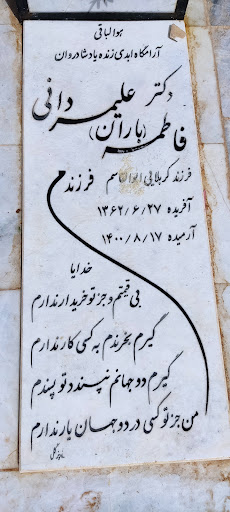 هوالباقی
آرامگاه ابدی زنده یاد شادروان
دکتر علیمردانی
فاطمه (باران)
فرزند کربلایی ابوالقاسم فرزندم
آفریده ۱۳۶۲/۶/۲۷
آرمیده ۱۴۰۰/۸/۱۷
خدایا
بی قیمتم و جز تو خریدار ندارم
گیرم بخرندم به کسی کار ندارم
گیرم دو جهانم نپسندند تو پسندم
من جز تو کسی در دو جهان یار ندارم